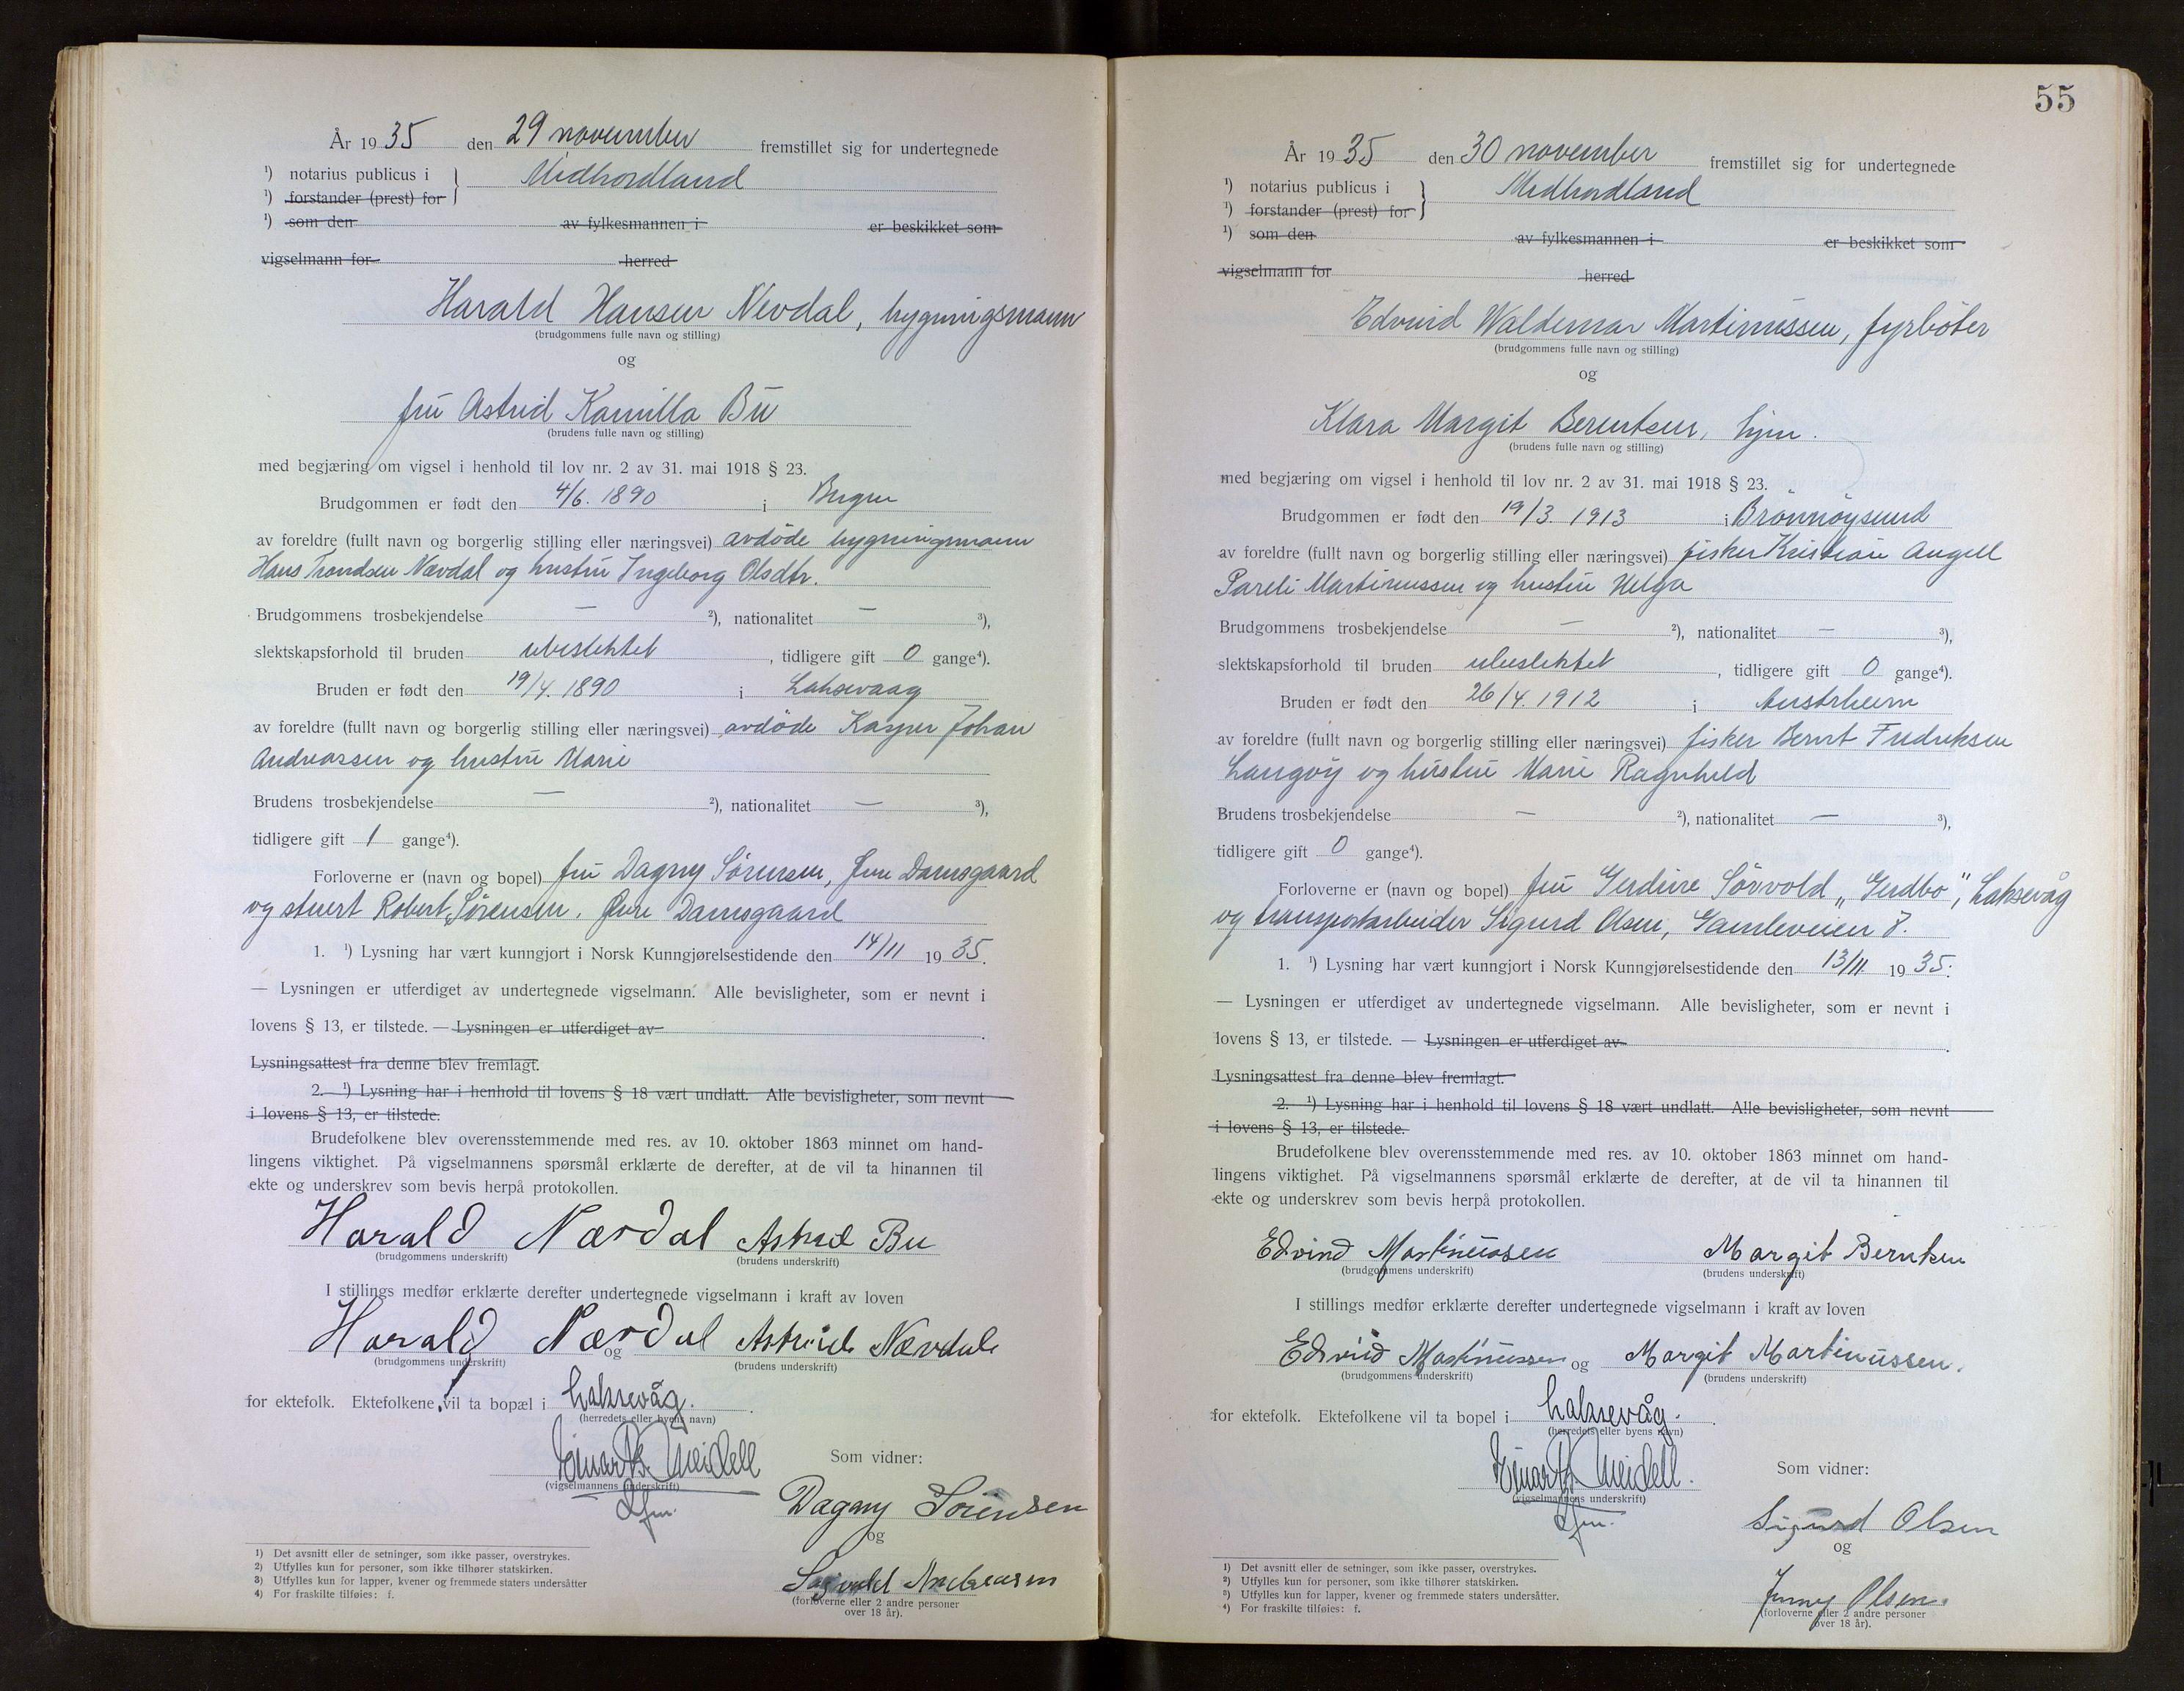 År 19 35 den 29 november fremstillet sig for undertegnede
¹) notarius publicus i } Midhordland
¹) forstander (prest) for
¹) som den av fylkesmannen i er beskikket som
vigselmann for herred
Harald Hansen Nevdal, bygningsmann
(brudgommens fulle navn og stilling)
og
fru Astrid Kamilla Bu
(brudens fulle navn og stilling)
med begjæring om vigsel i henhold til lov nr. 2 av 31. mai 1918 § 23.
Brudgommen er født den 4/6. 1890 i Bergen
av foreldre (fullt navn og borgerlig stilling eller næringsvei) avdöde bygningsmann
Hans Trondsen Nævdal og hustru Ingeborg Olsdtr.
Brudgommens trosbekjendelse — ²), nationalitet — ³),
slektskapsforhold til bruden ubeslektet, tidligere gift 0 gange⁴).
Bruden er født den 19/4. 1890 i Laksevaag
av foreldre (fullt navn og borgerlig stilling eller næringsvei) avdöde Kasper Johan
Andreassen og hustru Marie
Brudens trosbekjendelse — ²), nationalitet — ³),
tidligere gift 1 gange⁴).
Forloverne er (navn og bopel) fru Dagny Sörensen, Övre Damsgaard
og stuert Robert Sörensen. Övre Damsgaard
1. ¹) Lysning har vært kunngjort i Norsk Kunngjørelsestidende den 14/11 19 35.
— Lysningen er utferdiget av undertegnede vigselmann. Alle bevisligheter, som er nevnt i
lovens § 13, er tilstede. — Lysningen er utferdiget av
Lysningsattest fra denne blev fremlagt.
2. ¹) Lysning har i henhold til lovens § 18 vært undlatt. Alle bevisligheter, som nevnt
i lovens § 13, er tilstede.
Brudefolkene blev overensstemmende med res. av 10. oktober 1863 minnet om hand-
lingens viktighet. På vigselmannens spørsmål erklærte de derefter, at de vil ta hinannen til
ekte og underskrev som bevis herpå protokollen.
Harald Nævdal Astrid Bu
(brudgommens underskrift) (brudens underskrift)
I stillings medfør erklærte derefter undertegnede vigselmann i kraft av loven
Harald Nævdal og Astrid Nævdal
(brudgommens underskrift) (brudens underskrift)
for ektefolk. Ektefolkene vil ta bopæl i Laksevåg.
(herredets eller byens navn)
Einar B. Meidell
(vigselmannens underskrift)
Som vidner:
Dagny Sörensen
og
Andreasen
(forloverne eller 2 andre personer
over 18 år).
¹) Det avsnitt eller de setninger, som ikke passer, overstrykes.
²) Utfylles kun for personer, som ikke tilhører statskirken.
³) Utfylles kun for lapper, kvener og fremmede staters undersåtter
⁴) For fraskilte tilføies: f.
55
År 19 35 den 30 november fremstillet sig for undertegnede
¹) notarius publicus i } Midhordland
¹) forstander (prest) for
¹) som den av fylkesmannen i er beskikket som
vigselmann for herred
Edvind Waldemar Martinussen, fyrböter
(brudgommens fulle navn og stilling)
og
Klara Margit Berentsen, hjm.
(brudens fulle navn og stilling)
med begjæring om vigsel i henhold til lov nr. 2 av 31. mai 1918 § 23.
Brudgommen er født den 19/3. 1913 i Brönnöysund
av foreldre (fullt navn og borgerlig stilling eller næringsvei) fisker Kristian Angell
Pareli Martinussen og hustru Helga
Brudgommens trosbekjendelse — ²), nationalitet — ³),
slektskapsforhold til bruden ubeslektet, tidligere gift 0 gange⁴).
Bruden er født den 26/4. 1912 i Austrheim
av foreldre (fullt navn og borgerlig stilling eller næringsvei) fisker Bernt Fredriksen
Langöy og hustru Marie Ragnhild
Brudens trosbekjendelse — ²), nationalitet — ³),
tidligere gift 0 gange⁴).
Forloverne er (navn og bopel) fru Gerdine Sörvold „Gerdbo", Laksevåg
og transportarbeider Sigurd Olsen, Gamleveien 8.
1. ¹) Lysning har vært kunngjort i Norsk Kunngjørelsestidende den 13/11. 19 35.
— Lysningen er utferdiget av undertegnede vigselmann. Alle bevisligheter, som er nevnt i
lovens § 13, er tilstede. — Lysningen er utferdiget av
Lysningsattest fra denne blev fremlagt.
2. ¹) Lysning har i henhold til lovens § 18 vært undlatt. Alle bevisligheter, som nevnt
i lovens § 13, er tilstede.
Brudefolkene blev overensstemmende med res. av 10. oktober 1863 minnet om hand-
lingens viktighet. På vigselmannens spørsmål erklærte de derefter, at de vil ta hinannen til
ekte og underskrev som bevis herpå protokollen.
Edvind Martinussen Margit Berntsen
(brudgommens underskrift) (brudens underskrift)
I stillings medfør erklærte derefter undertegnede vigselmann i kraft av loven
Edvind Martinussen og Margit Martinussen.
(brudgommens underskrift) (brudens underskrift)
for ektefolk. Ektefolkene vil ta bopel i Laksevåg.
(herredets eller byens navn)
Einar B. Meidell.
(vigselmannens underskrift)
Som vidner:
Sigurd Olsen
og
Jenny Olsen.
(forloverne eller 2 andre personer
over 18 år).
¹) Det avsnitt eller de setninger, som ikke passer, overstrykes.
²) Utfylles kun for personer, som ikke tilhører statskirken.
³) Utfylles kun for lapper, kvener og fremmede staters undersåtter.
⁴) For fraskilte tilføies: f.